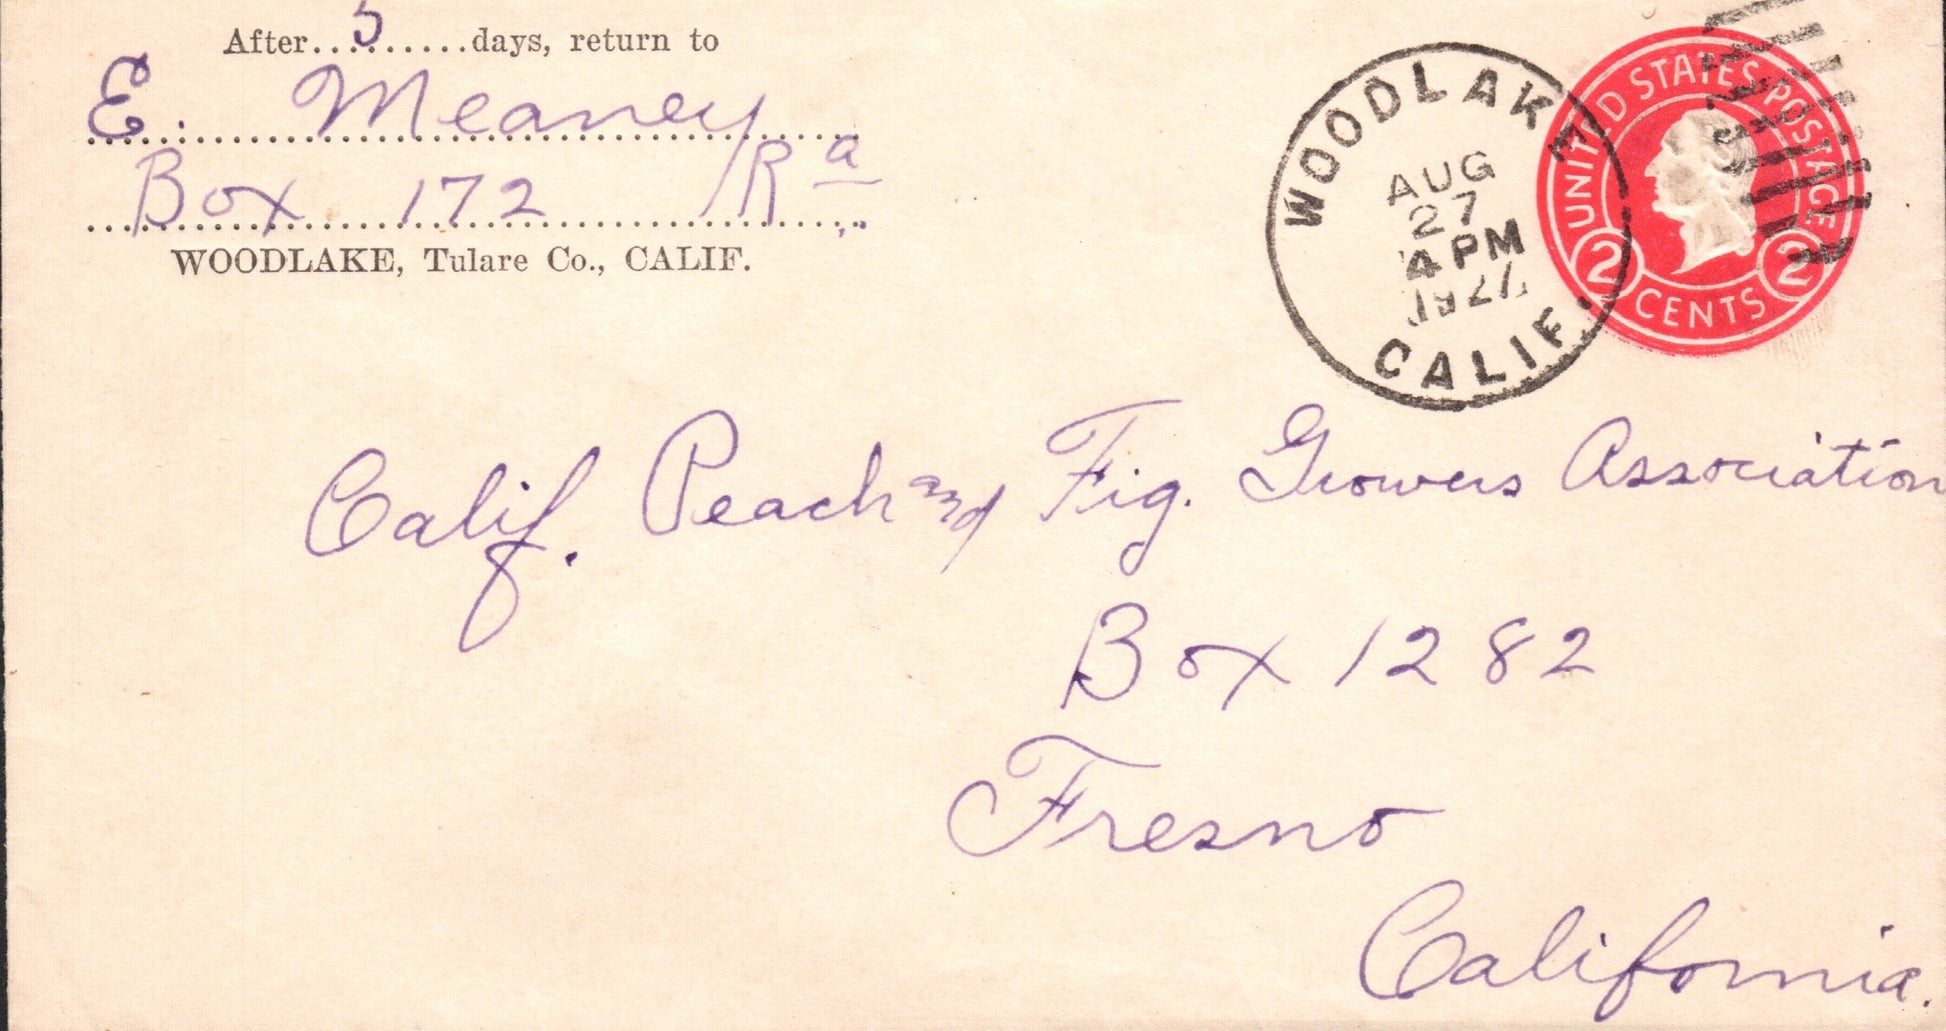 After....5......days, return to
E. Meaney
Box 172 Ra
WOODLAKE, Tulare Co., CALIF.
WOODLAKE
AUG
27
4 PM
CALIF.
UNITED STATES POSTAGE
2 CENTS 2
Calif. Peach and Fig. Growers Association
Box 1282
Fresno
California.